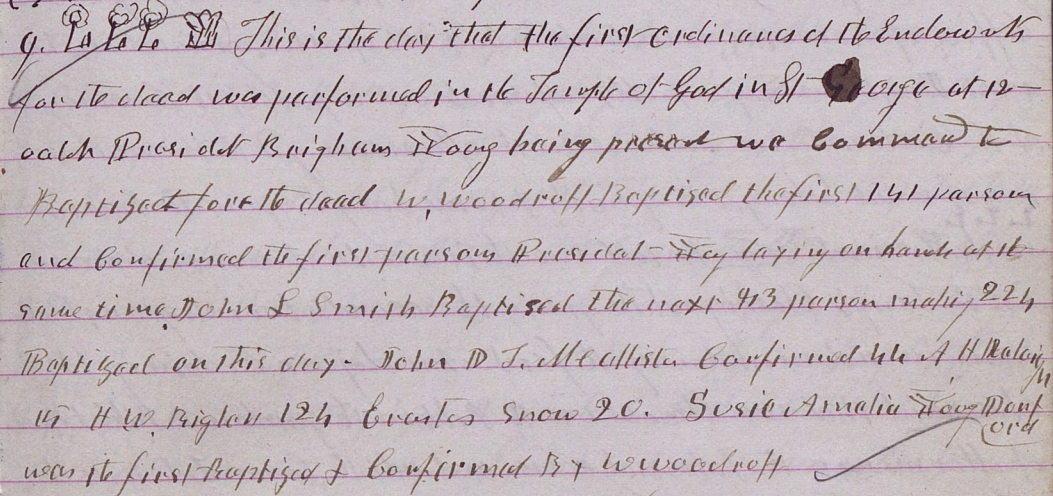 9. This is the day that the first ordinances of the Endowmts
for the dead was parformed in the Temple of God in St George at 12
oclk Presidet Brigham Young being present we Command to
Baptised for the dead W, Woodroff Baptised the first 141 parsom
and Confirmed the first parsom Presidet Yog laying on hands at the
same time John L Smith Baptised the next
Baptized on this day. John D T. McAllister Confirmed A H
H W. Biglar Erastus Snow 20. Susie Amalia Young Dunf
ord
was the first Baptized & Confirmed By W Woodroff